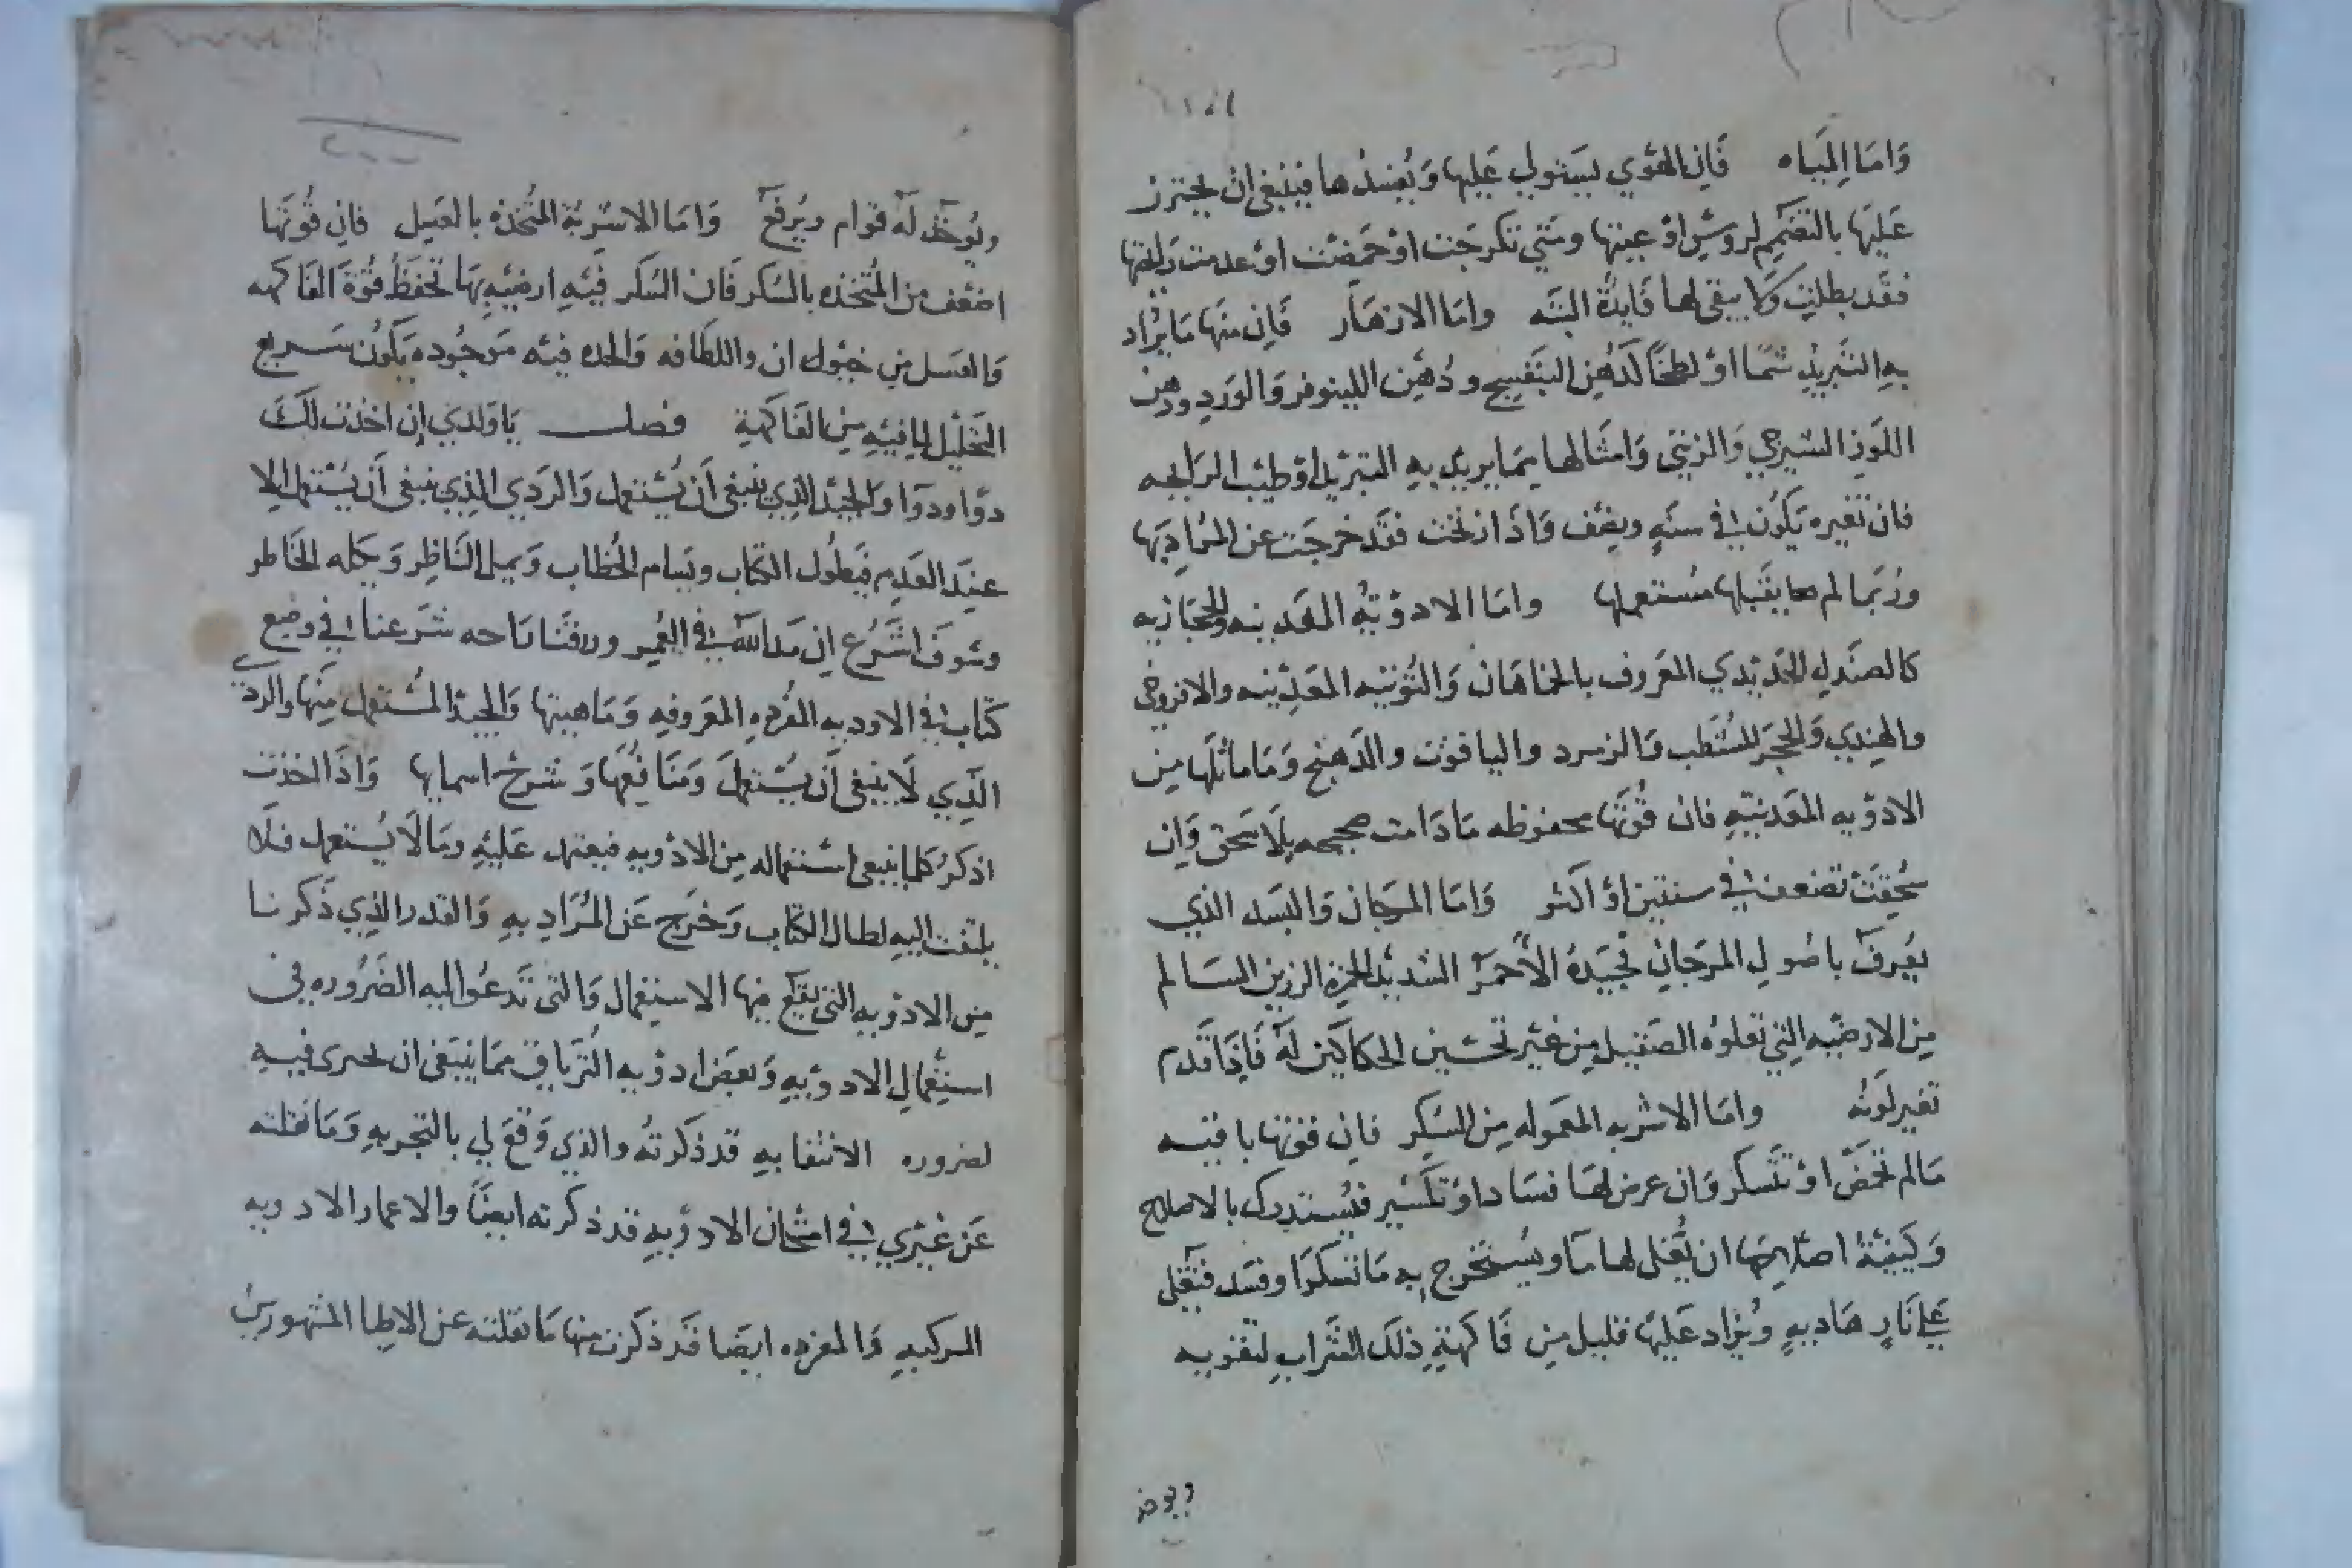 وَامَا المِيَاه فَاِن الهَوَي يستولي عَليها وَيُفسدها فينبغي ان يحترز
عَليَها بالتَضَمِيم لروس اَوْعيتها ومَتي تكرجَت اوْحَمِضَت اوْ عدمت رَايحتها
فقَد بطلت وَلا يبقي لها فَايدَة البَتَه وامَا الازهَار فَاِن منهَا مَا يُرَاد
بهِ التَبريدِ شَمًا اوْ لطخًا كَدُهْن البَنَفسِج ودُهْن اللينوفر وَالوَردِ ودهن
اللَوز السيرجي وَالزيتي وَامثَالهَا ممَا يريد بهِ التبريد اوْ طيب الرَايحه
فان تغيره يَكُون في سنَهٍ ونِصْف وَاذَا زنخت فقَد خرجَت عن المُرادِ بَها
ورُبَما لم يقبَلها مُستعملها وامَا الادوْيَهُ المعَدنيه والحجَازيه
كالصنَدلِ الحَديدي المعَروف بالخمَاهَان وَالتُوتيَه المعَدِنيه والافروجي
والهِندي وَالحجَر المشطَب وَالزمرد والياقوت والدَهنج وَمَا ماثلَها مِن
الادوْيه المعَدنيَهِ فان قُوتَها محفوظه مَادَامت صحيحه بِلا سَحق وَاِن
سُحِقَت تضعف في سنتين اوْ اكثَر وَامَا المرَجان وَالبسَد الذي
يعُرفَ باصُولِ المرَجانِ فجيَدهُ الاَحمَر الشديد الحمُرَه الرزين السَالم
مِن الارضيَه التِي تعَلوُه الصَقيل مِن غيَر تحسين الحكاكين لَهُ فَاِذَا قَدم
تغير لَونُه وامَا الاشربه المعَموله مِن السُكر فاِن قوتها باقيه
مَالم تحمَض اوْ تتَسكر وَان عرض لهَا فسَاد اوْ تكسير فيُستدرك بالاصلاح
وَكيَفيَةُ اصلاحِها ان يُغلي لهَا مَا ويُستخرج بِه مَا تسكَر اوْ فسَد فيَغلي
عَلي نَارٍ هَاديهٍ ويُزاد عَليهَا قليل مِن فَاكهَةِ ذلَك الشَرابِ لتقويه
ويوخذ
ويُوخَذ لَهُ قوَام ويُرفَع وَامَا الاشربَة المتُخذه بالعَسل فان قُوتَها
اضعَف من المُتخذه بالسُكر فَان السُكر فيَهِ ارضيَه بِهَا تحُفَظ قُوَة الفَاكهه
وَالعسَل مِن حيَوان واللطَافه وَالحده فيَه مَوجُوده يَكُون سَريع
التَحَليل لمِا فيَهِ مِن الفَاكهَةِ فصل يَا وَلدي اِن اخذت لكَ
دوَا ودوَا وَالجيَد الذِي ينبغي أن يُستعمل وَالرَدي الذِي ينبغي أن يُستعمل الا
عِندَ العَدم فيَطوُل الكتاب ويَسام الخُطَاب وَيمل النَاظِر وَيكله الخَاطر
وسَوفَ اشَرُع اِن مَد الله في العُمرِ ورزقنَا رَاحه شَرعنا في وضع
كتابٍ في الاوديه المفُردِه المعَروفه وَمَاهيتها وَالجيد المُستعمل مِنهَا والردي
الذِي لَا ينبغي أَن يسُتعمَلَ وَمَنَافِعُها وَ شَرحُ اسمايها وَاذَا اخذت
اذكُر كلما ينبغي استعماله مِن الادْويهِ فيعتمد عَليَهِ ومَا لَا يُستعمل فلَا
يلتفت اليهِ لطال الكتَاب وَخرَج عَن المُرَادِ بهِ وَالقدر الذِي ذَكرنا
مِن الادْويهِ التي يقَع مِنها الاستعِمَال وَالتي تَدعُوا اليه الضَرُوره في
استِعِمَالِ الادويهِ وَبعَض ادوْيه التُرياق ممَا ينبَغي ان يجري فيه
لضروره الانتفَا بِهِ قد ذكَرتهُ والذي وَقعَ لي بالتجربِهِ وَمَا نقلته
عَن غيَري في امتحَان الادوْيهِ قد ذكرته ايضًا والاعمار الادويه
المركبهِ وَالمفرده ايضَا قَد ذكَرت منها مَا نقلته عن الاطبا المشهورين